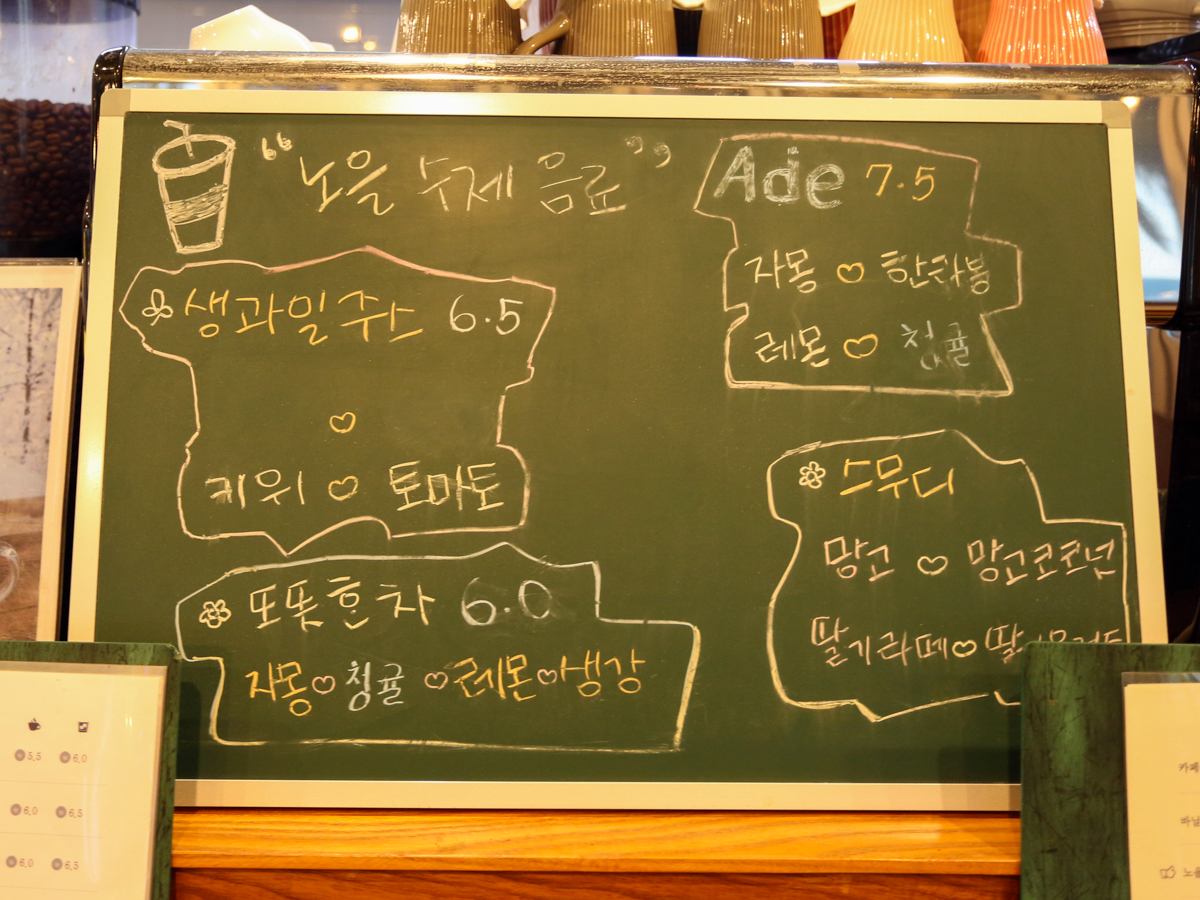 "노을 수제 음료"
생과일 주스 6.5
키위 토마토
또뜻한 차 6.0
자몽 청귤 레몬 생강
Ade 7.5
자몽 한라봉
레몬 청귤
스무디
망고 망고코코넛
딸기라떼
5.5 6.0
6.0 6.5
6.0 6.5
카페